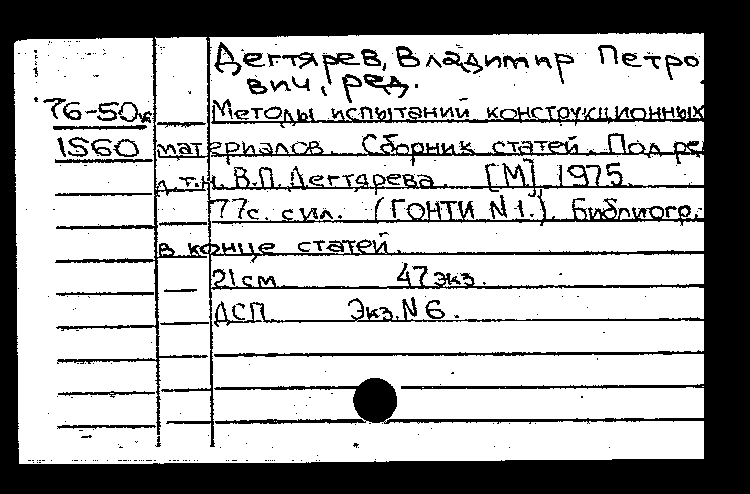 Дегтярев, Владимир Петро
вич, ред.
76-50 Методы испытаний конструкционных
1560 материалов. Сборник статей. Под ре
д.т.н. В.П. Дегтярева. [М], 1975.
77с. с ил. (ГОНТИ N 1.). Библиогр.
в конце статей.
21 см 47 экз.
ДСП Экз. N 6.